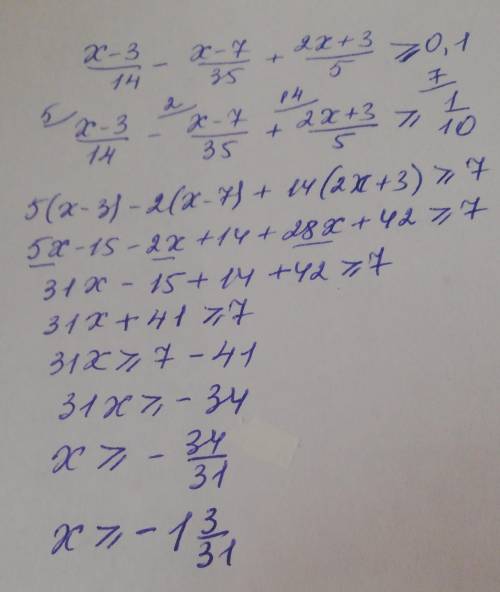 x-3/14 - x-7/35 + 2x+3/5 ⩾ 0,1
5/ x-3/14 - 2/ x-7/35 + 14/ 2x+3/5 ⩾ 7/ 1/10
5(x-3)-2(x-7)+14(2x+3)⩾7
5x-15-2x+14+28x+42⩾7
31x-15+14+42⩾7
31x+41⩾7
31x⩾7-41
31x⩾-34
x⩾-34/31
x⩾-1 3/31